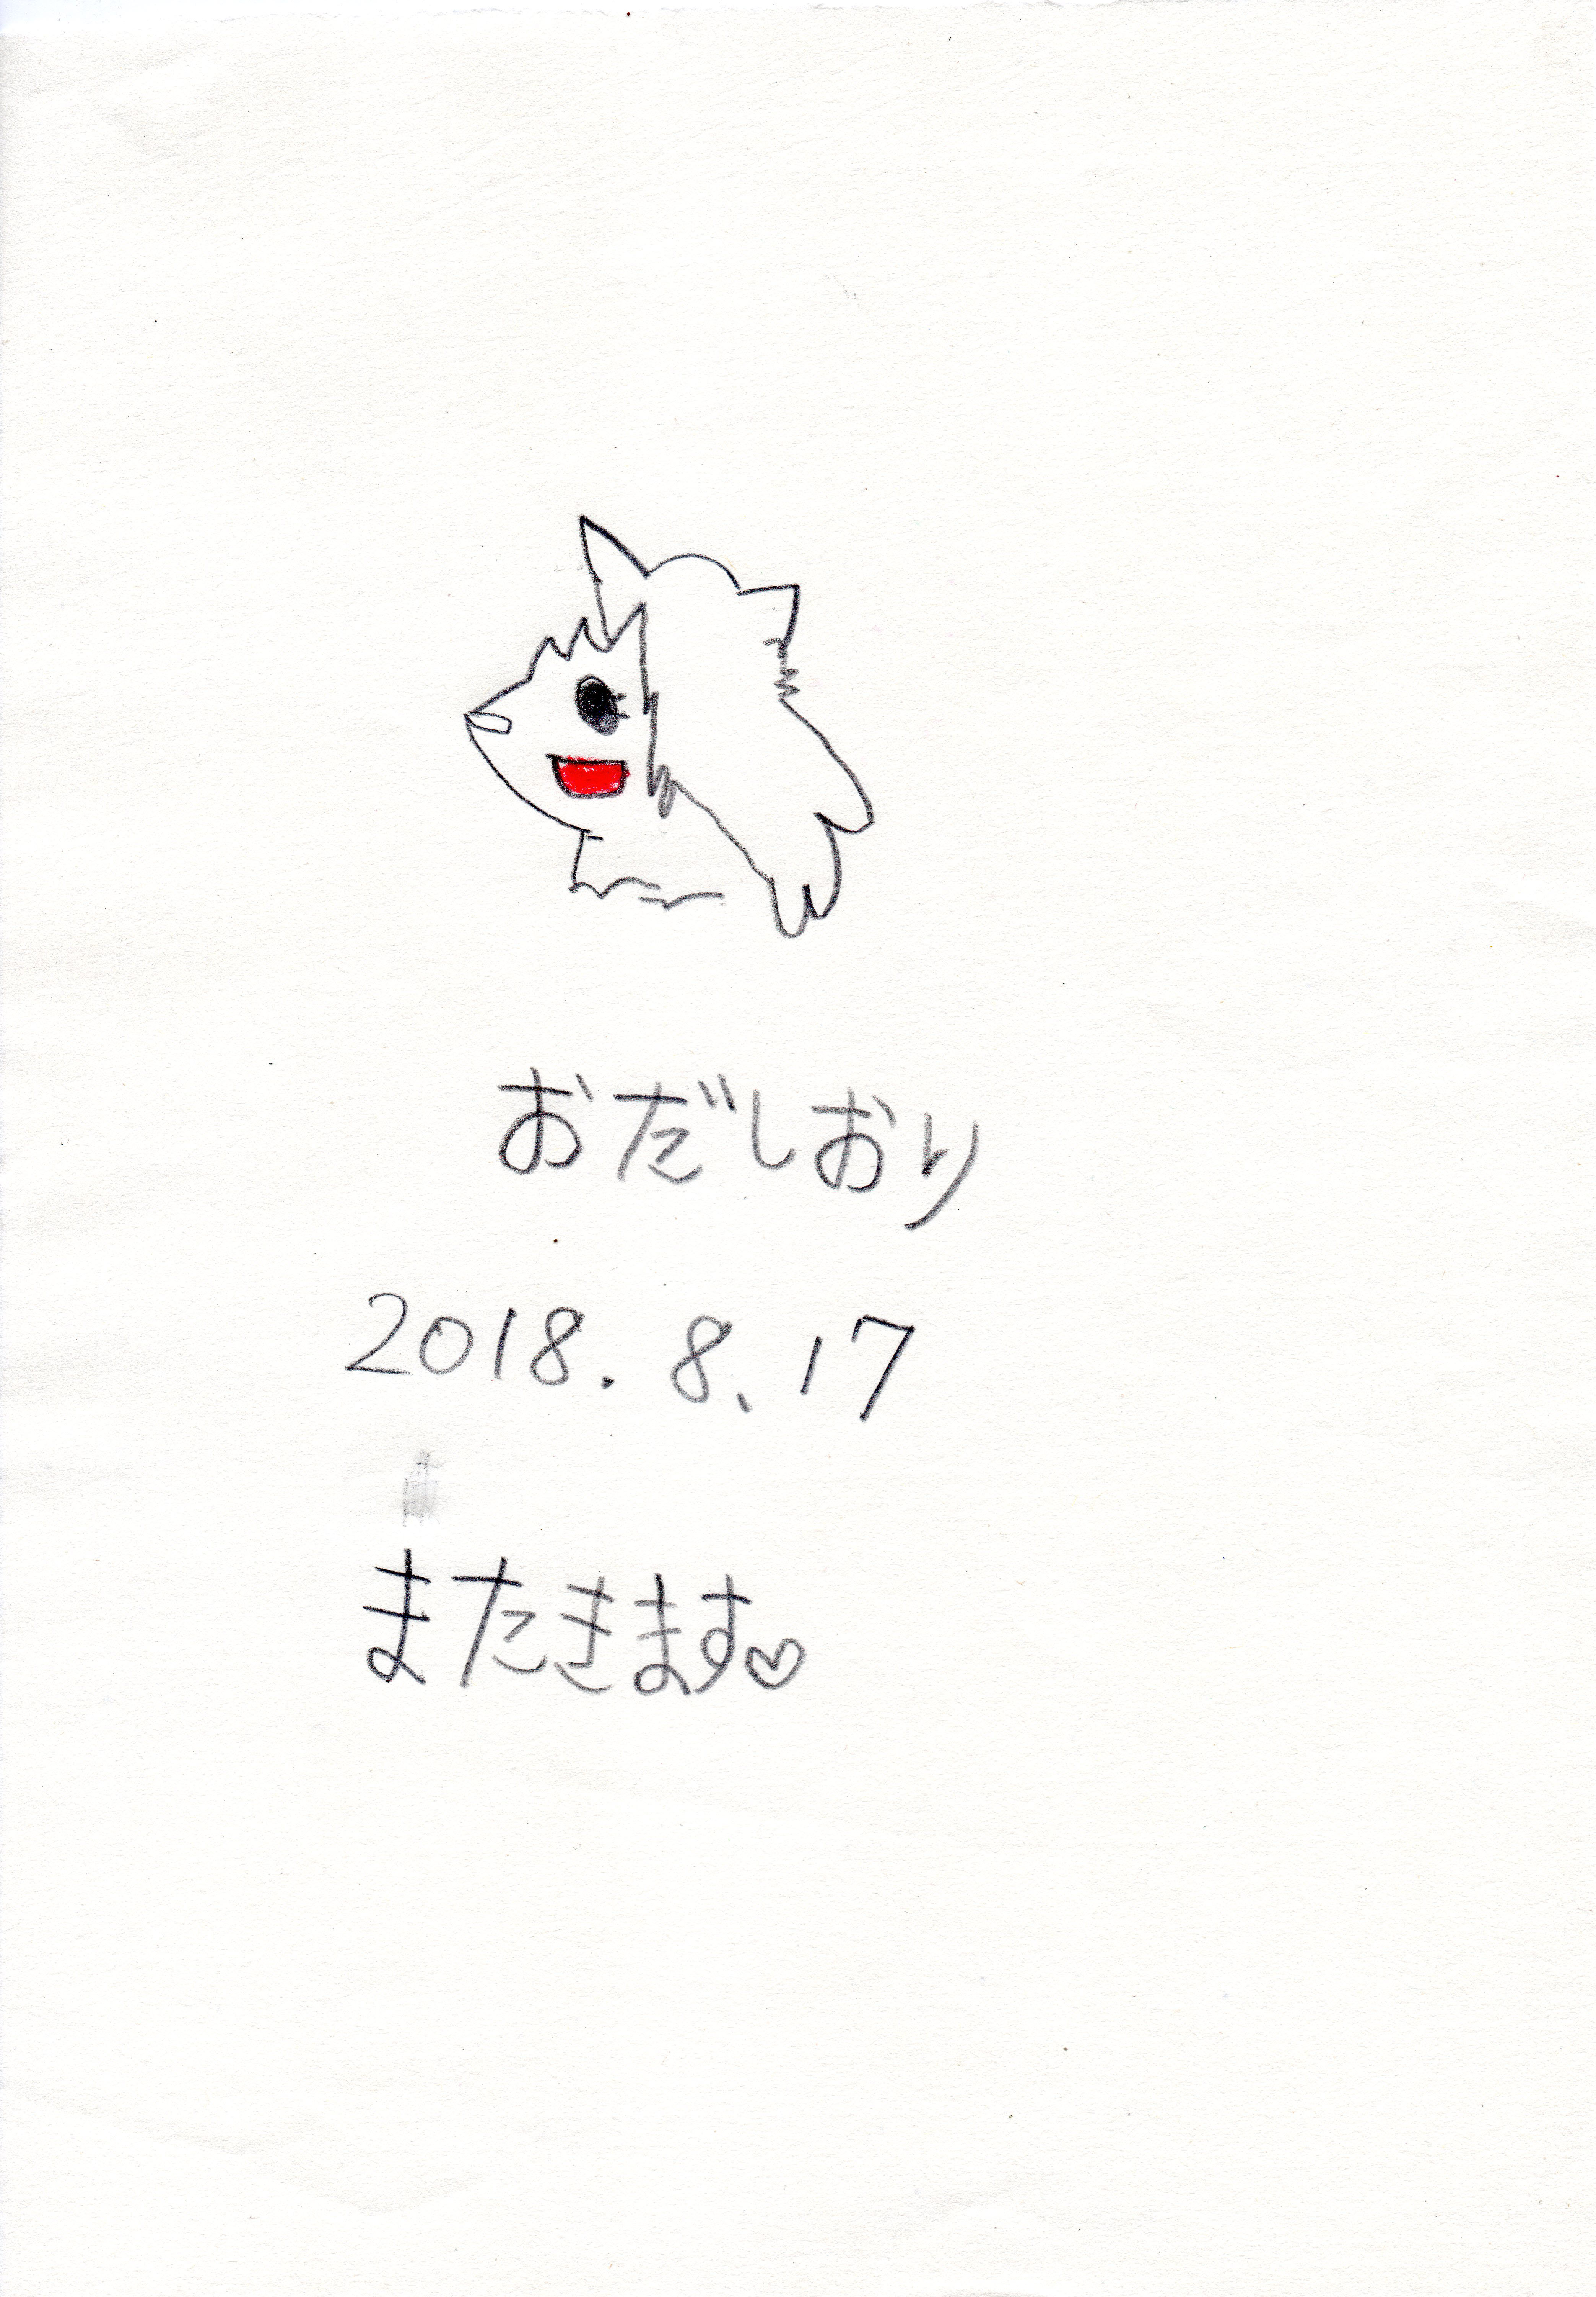 おだしおり
2018.8.17
またきます♡